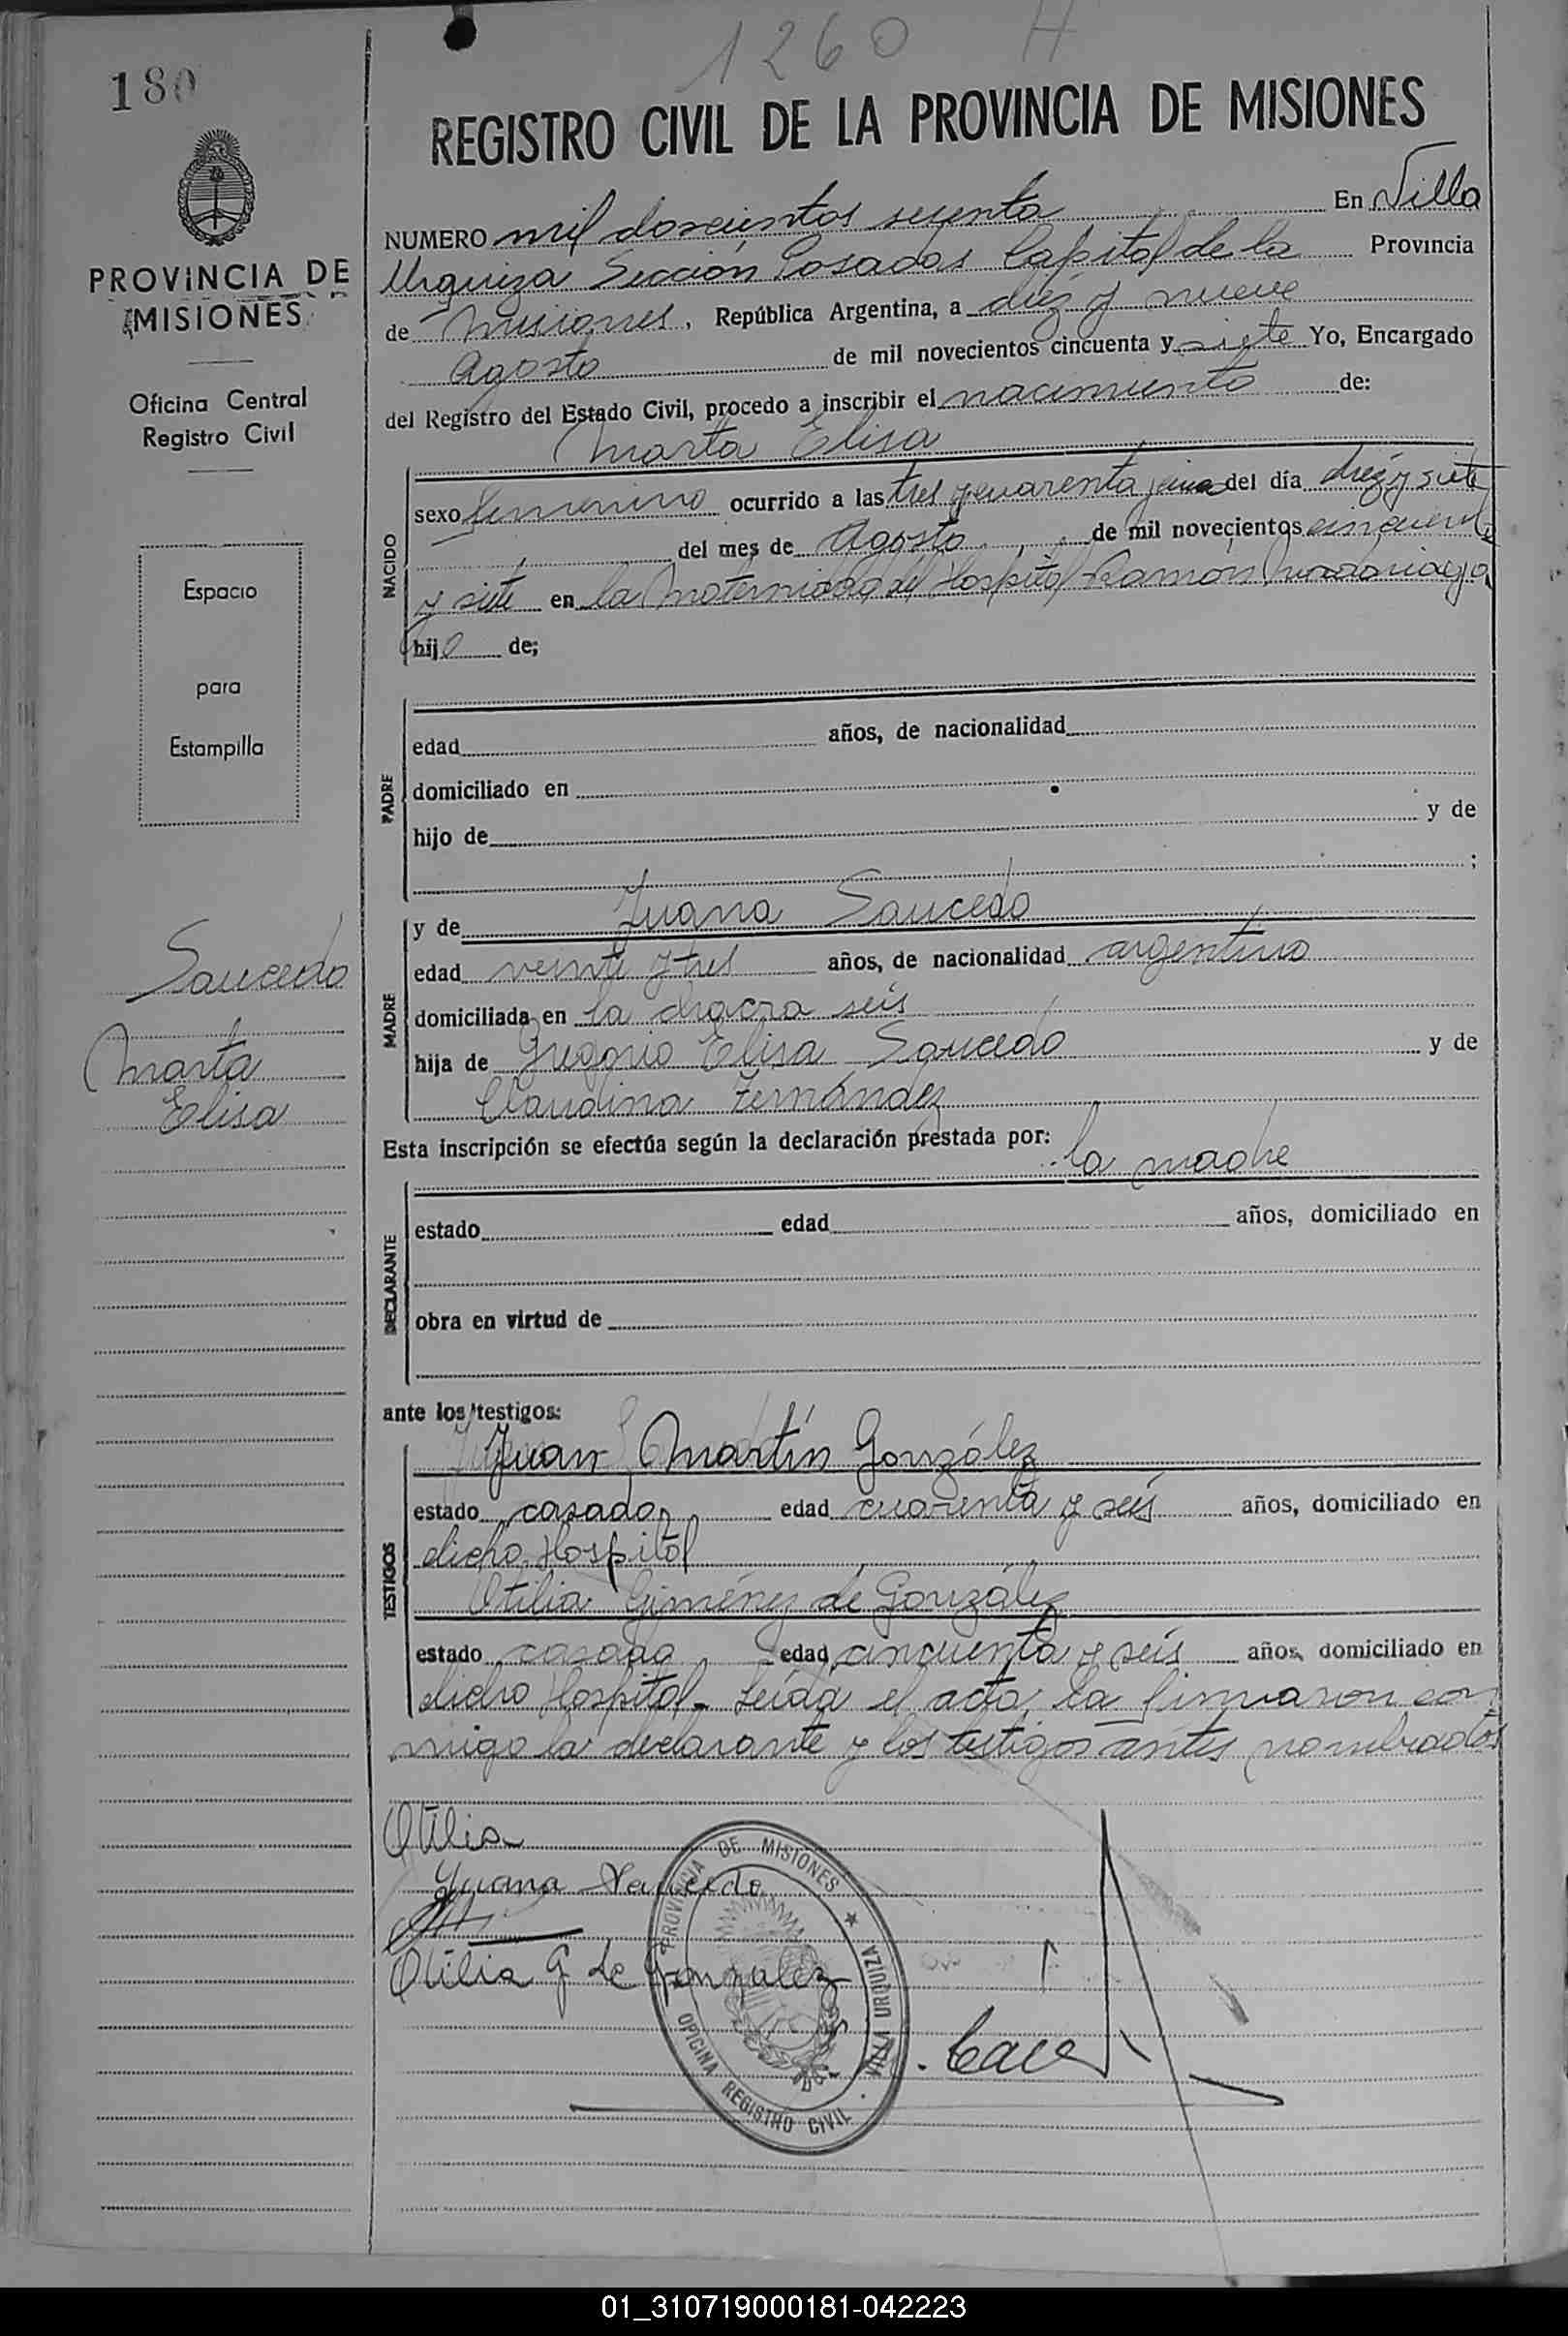 1260 H
180
REGISTRO CIVIL DE LA PROVINCIA DE MISIONES
PROVINCIA DE
MISIONES
Oficina Central
Registro Civil
Espacio
para
Estampilla
Saucedo
Marta
Elisa
NUMERO mil doscientos sesenta En Villa
Urquiza Sección Posadas Capital de la Provincia
de Misiones, República Argentina, a diez y nueve
Agosto de mil novecientos cincuenta y siete Yo, Encargado
del Registro del Estado Civil, procedo a inscribir el nacimiento de:
Marta Elisa
NACIDO
sexo femenino ocurrido a las tres y cuarenta y cinco del día diez y siete
del mes de Agosto de mil novecientos cincuenta
y siete en la Maternidad del Hospital Ramón Madariaga
hij de;
PADRE
edad años, de nacionalidad
domiciliado en
hijo de y de
;
MADRE
y de Juana Saucedo
edad veinte y tres años, de nacionalidad argentina
domiciliada en la chacra seis
hija de Gregorio Elisa Saucedo y de
Claudina Fernández
Esta inscripción se efectúa según la declaración prestada por:
la madre
DECLARANTE
estado edad años, domiciliado en
obra en virtud de
ante los testigos:
TESTIGOS
Juan Martín González
estado casado edad cuarenta y seis años, domiciliado en
dicho Hospital
Otilia Giménez de González
estado casada edad cincuenta y seis años, domiciliado en
dicho Hospital. Leída el acta, la firmaron con
migo la declarante y los testigos antes nombrados
Otilia
Juana Saucedo
Otilia G de Gonzalez
PROVINCIA DE MISIONES ★ VILLA URQUIZA
OFICINA REGISTRO CIVIL
01_310719000181-042223